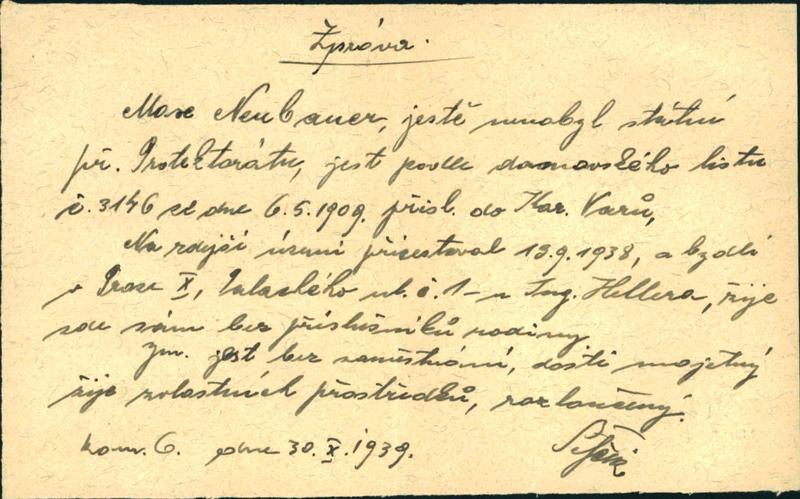 Zpráva.
Max Neubauer, jestě nenabyl státní
př. Protektorátu, jest podle domovského listu
č. 3146 ze dne 6.5.1909. přísl. do Kar. Varů,
Na zdejší území přicestoval 19.9.1938, a bydlí
v Praze X, Palackého ul. č. 1 - u Ing. Hellera, žije
zde sám bez příslušníků rodiny.
Jm. jest bez zaměstnání, dosti majetný
žije z vlastních prostředků, rozloučený.
kom. 6. dne 30.X.1939.